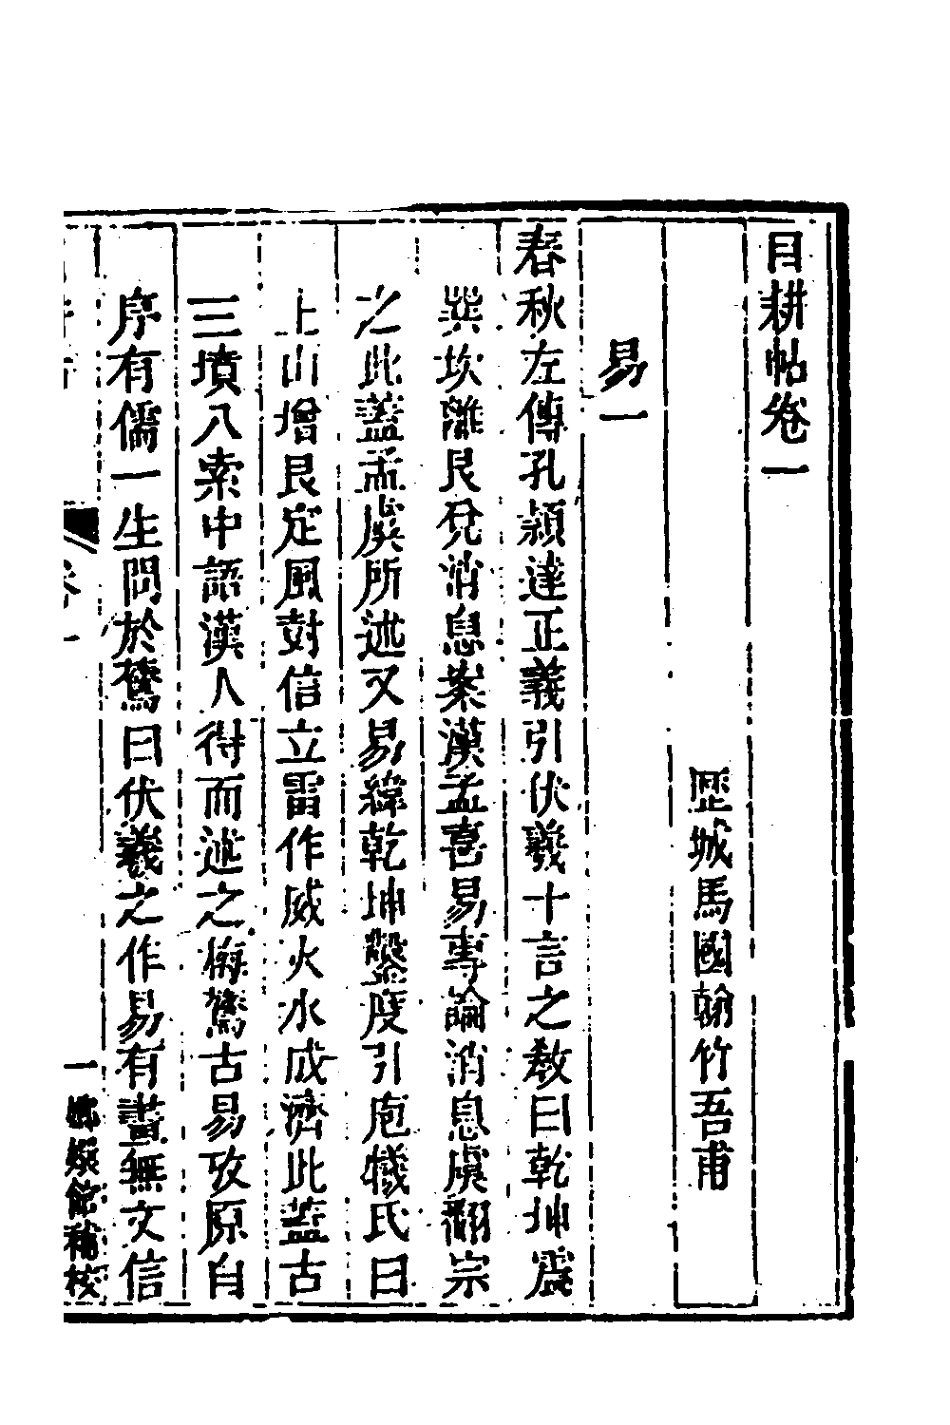 目耕帖卷一
歷城馬國翰竹吾甫
易一
春秋左傳孔穎達正義引伏羲十言之教曰乾坤震
巽坎離艮兌消息案漢孟喜易專論消息虞翻宗
之此蓋孟虞所述又易緯乾坤鑿度引庖犧氏曰
上山增艮定風尌信立雷作威火水成濟此蓋古
三墳八索中語漢人得而述之梅鷟古易攷原自
序有儒一生問於鷟曰伏羲之作易有畫無文信
卷一
一 嫏嬛館補校